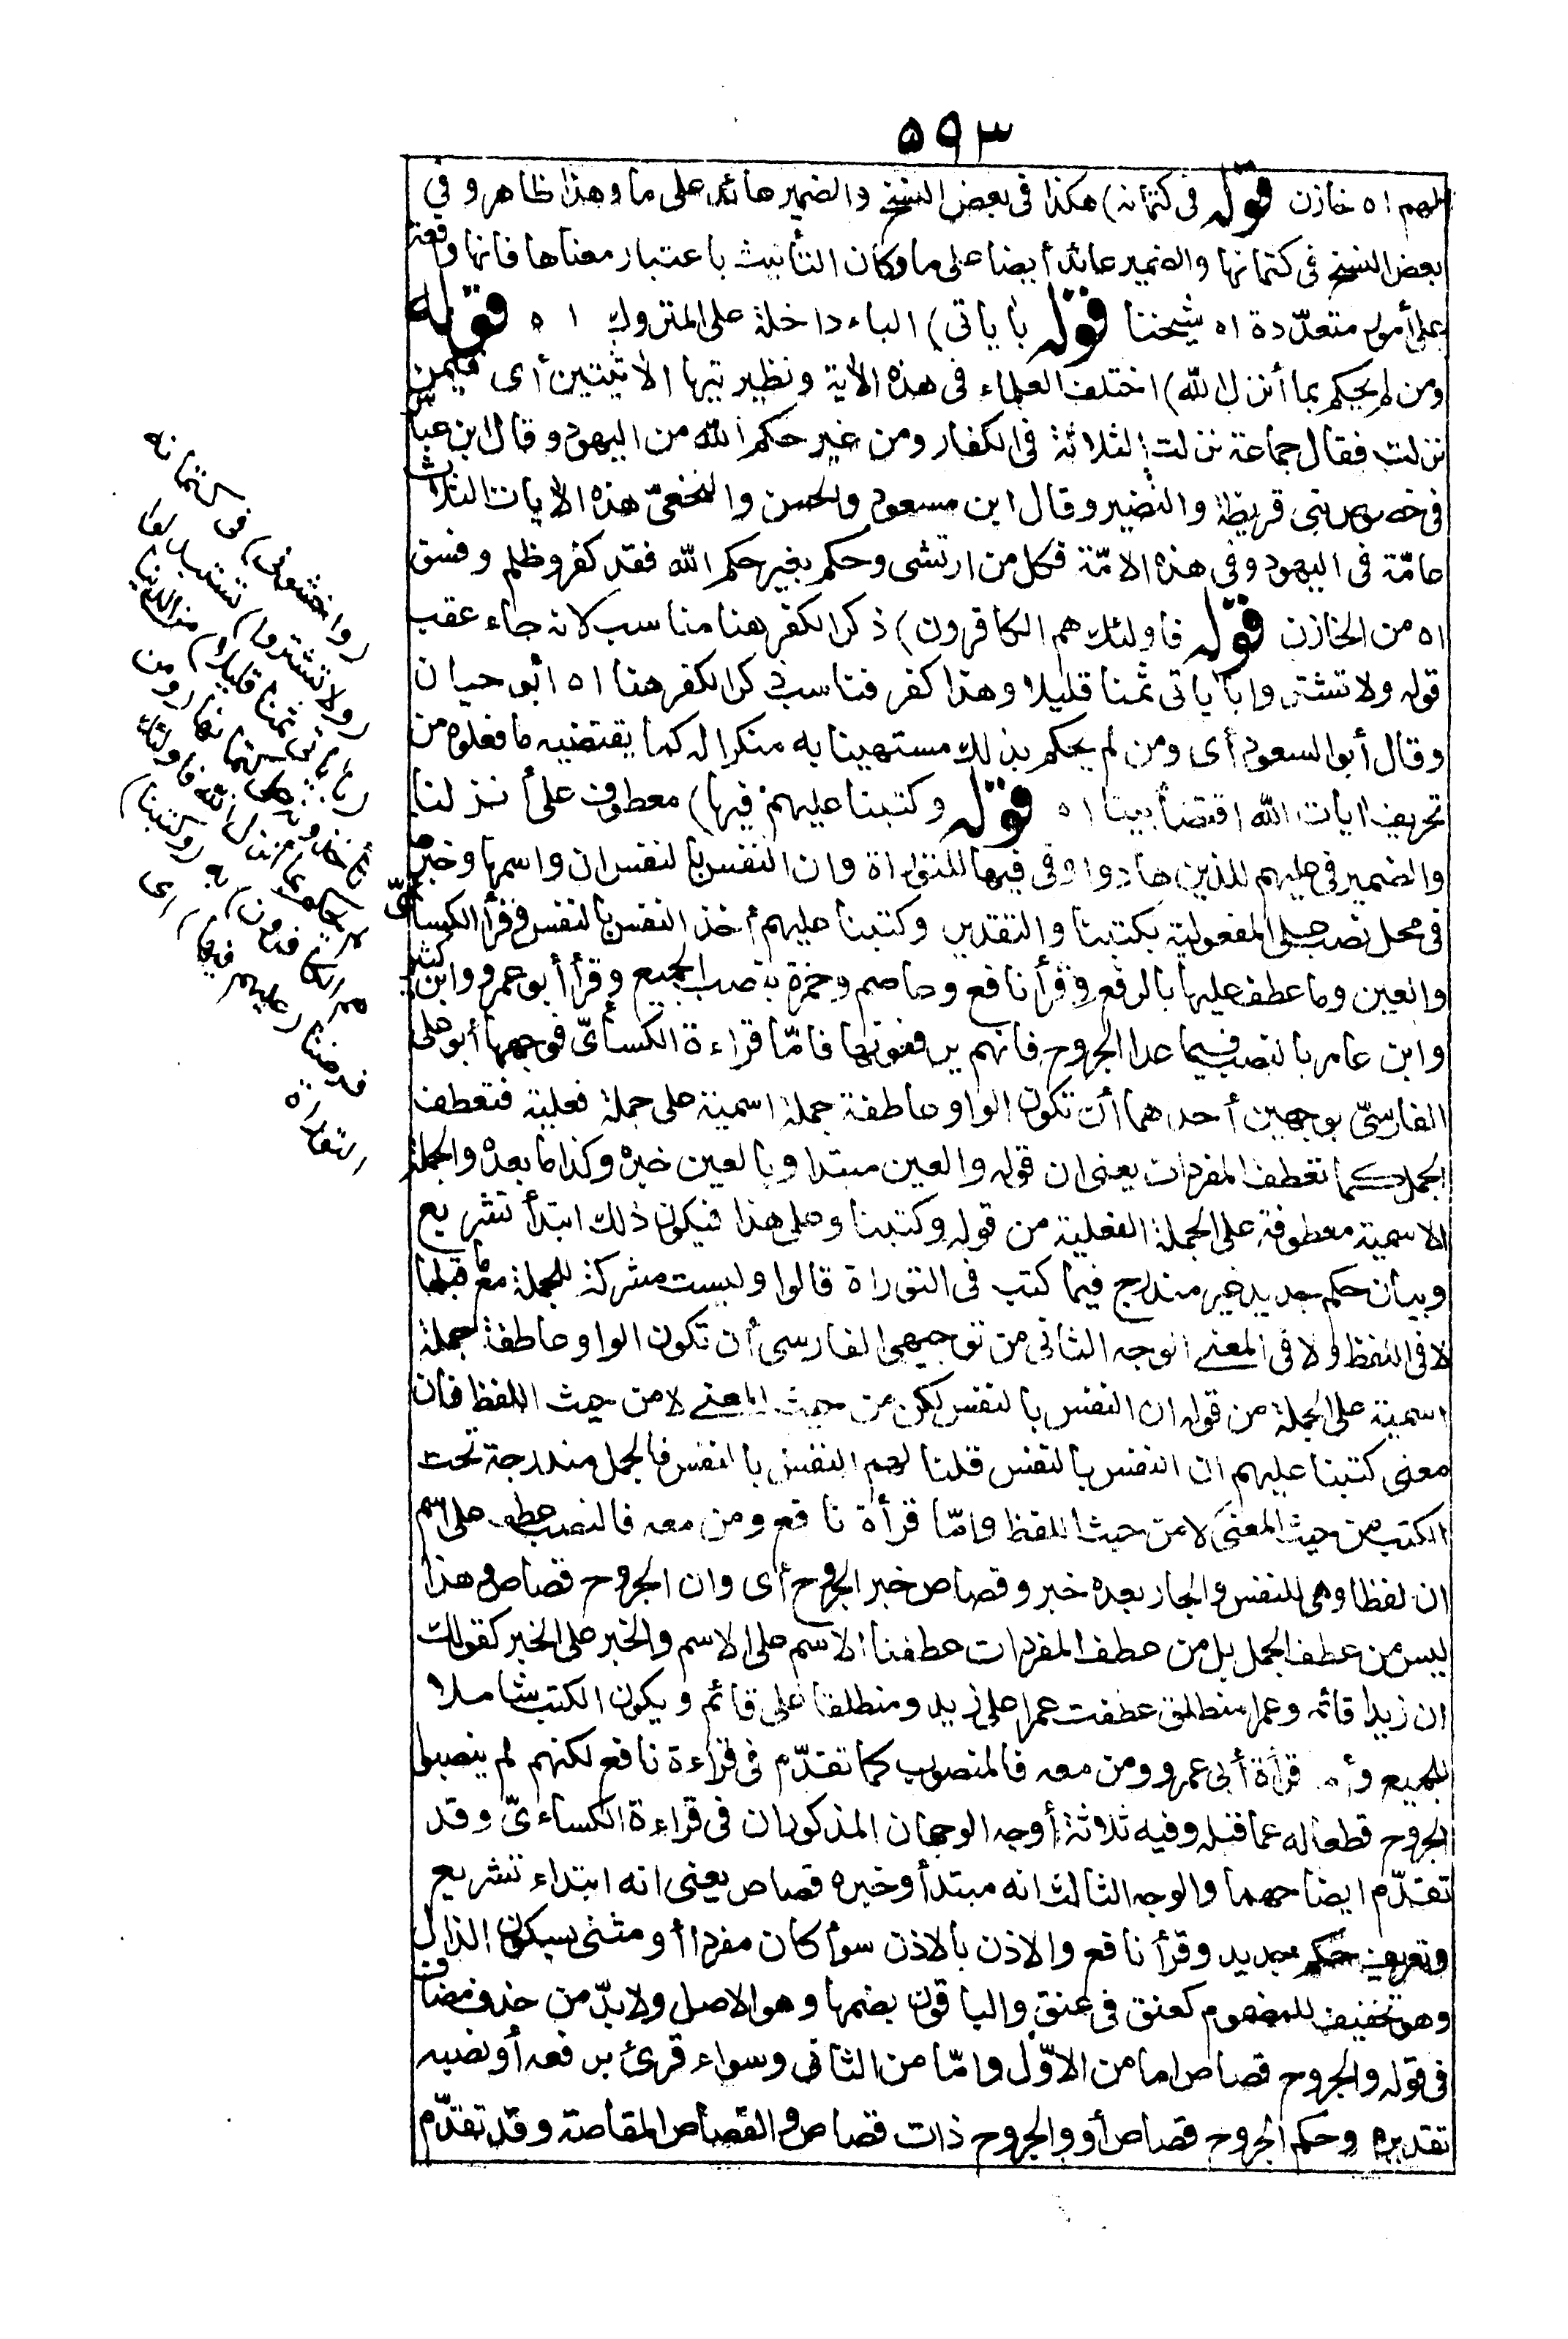 ٥٩٣
لهم اه خازن قوله في كتمانه) هكذا في بعض النسخ والضمير عائد على ما وهذا ظاهر و في
بعض النسخ في كتمانها والضمير عائد أيضا على ما وكان التأنيث باعتبار معناها فانها وقعت
على أمور متعدّدة اه شيخنا قوله باياتي) الباء داخلة على المتروك ا ه قوله
ومن لم يحكم بما أنزل الله) اختلف العلماء في هذه الأية ونظيرتيها الأتيتين أى فيمن
نزلت فقال جماعة نزلت الثلاثة في الكفار ومن غير حكم الله من اليهود وقال ابن عباس
في خصوص بني قريظة والنضير وقال ابن مسعود والحسن والنخعىّ هذه الأيات الثلاث
عامّة في اليهود وفي هذه الامّة فكل من ارتشى وحكم بغير حكم الله فقد كفر وظلم وفسق
اه من الخازن قوله فاولئك هم الكافرون) ذكر الكفر هنا مناسب لانه جاء عقب
قوله ولا تشتروا باياتى ثمنا قليلا وهذا كفر فناسب ذكر الكفر هنا اه أبو حيان
وقال أبو السعود أى ومن لم يحكم بذلك مستهينا به منكرا له كما يقتضيه ما فعلوه من
تحريف ايات الله اقتضأ بينا اه قوله وكتبنا عليهم فيها) معطوف على أنزلنا
والضمير في عليهم للذين هادوا وفي فيها للتوراة وان النفس بالنفس ان واسمها وخبرها
في محل نصب على المفعولية بكتبنا والتقدير وكتبنا عليهم أخذ النفس بالنفس وقرأ الكسائىّ
والعين وما عطف عليها بالرفع وقرأ نافع وعاصم وحمزة بنصب الجميع وقرأ أبو عمرو وابن كثير
وابن عامر بالنصب فيما عدا الجروح فانهم يرفعونها فامّا قراءة الكسأىّ فوجهها أبو على
الفارسىّ بوجهين أحدهما أن تكون الواو عاطفة جملة اسمية على جملة فعلية فتعطف
الجمل كما تعطف المفردات يعنى ان قوله والعين مبتدا وبالعين خبره وكذا ما بعده والجملة
الاسمية معطوفة على الجملة الفعلية من قوله وكتبنا وعلى هذا فيكون ذلك ابتدأ تشريع
وبيان حكم جديد غير مندرج فيما كتب في التوراة قالوا وليست مشركة للجملة مع ما قبلها
لا في اللفظ ولا في المعنى الوجه الثانى من توجيهى الفارسى أن تكون الواو عاطفة جملة
اسمية على الجملة من قوله ان النفس بالنفس لكن من حيث المعنى لا من حيث اللفظ فان
معنى كتبنا عليهم ان النفس بالنفس قلنا لهم النفس بالنفس فالجمل مندرجة تحت
الكتب من حيث المعنى لا من حيث اللفظ وامّا قرأة نافع ومن معه فالنصب عطف على اسم
ان لفظا وهى للنفس والجار بعده خبر وقصاص خبر الجروح أى وان الجروح قصاص وهذا
ليس من عطف الجمل بل من عطف المفردات عطفنا الاسم على الاسم والخبر على الخبر كقولك
ان زيدا قائم وعمرا منطلق عطفت عمرا على زيد ومنطلقا على قائم ويكون الكتب شاملا
للجميع وأما قرأة أبى عمرو ومن معه فالمنصوب كما تقدّم في قراءة نافع لكنهم لم ينصبوا
الجروح قطعا له عما قبله وفيه ثلاثة أوجه الوجهان المذكوران في قراءة الكساءىّ وقد
تقدّم ايضاحهما والوجه الثالث انه مبتدأ وخبره قصاص يعنى انه ابتداء تشريع
وتعريف حكم جديد وقرأ نافع والاذن بالاذن سوأ كان مفردا أو مثنى بسكون الذال
وهو تخفيف للمضموم كعنق في عنق والباقون بضمها وهو الاصل ولا بدّ من حذف مضاف
في قوله والجروح قصاص اما من الاوّل وامّا من الثانى وسواء قرئ برفعه أو نصبه
تقديره وحكم الجروح قصاص أو والجروح ذات قصاص والقصاص المقاصة وقد تقدّم
رواخشونى) فى كتمانه
رولا تشتروا) تستبدلوا
رباياتى ثمنا قليلا) من الدنيا
تأخذونه على كتمانها رومن
لم يحكم بما انزل الله فاولئك
هم الكافرون) به روكتبنا)
فرضنا رعليهم فيها) اى
التوراة